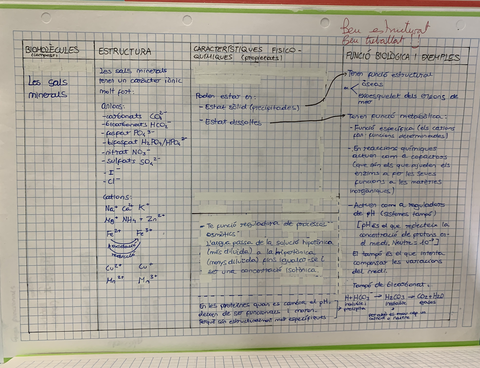 Ben estructurat
Ben treballat!
BIOMOLÈCULES
ESTRUCTURA
CARACTERÍSTIQUES FISICO-
QUÍMIQUES (propietats)
FUNCIÓ BIOLÒGICA I EXEMPLES
Les sals
minerals
Les sals minerals
tenen un caràcter iònic
molt fort:
Anions:
-carbonats CO₃²⁻
-bicarbonats HCO₃⁻
-fosfat PO₄³⁻
-bifosfat H₂PO₄/HPO₄²⁻
-nitrat NO₃⁻
-sulfats SO₄²⁻
- I⁻
- Cl⁻
cations:
Na⁺ Ca²⁺ K⁺
Mg²⁺ NH₄⁺ Zn²⁺
Fe²⁺ Fe³⁺
oxidació
reducció
Cu²⁺ Cu⁺
Mn²⁺ Mn³⁺
Poden estar en:
- Estat sòlid (precipitades)
- Estat dissoltes
- Té funció reguladora de processos
osmòtics:
L'aigua passa de la solució hipotònica
(més diluïda) a la hipertònica
(menys diluïda) fins igualar-se i
ser una concentració isotònica.
En les proteïnes quan es canvia el pH,
deixen de ser funcionals i moren.
Tenen funció estructural
óssos
exoesquelet dels eriçons de
mar
Tenen funció metabòlica:
- Funció específica (els cations
fan funcions determinades)
- En reaccions químiques
actuen com a cofactors
(que són els que ajuden els
enzims a fer les seves
funcions a les matèries
inorgàniques)
- Actuen com a reguladors
de pH (sistemes tampó)
[pH és el que reflecteix la
concentració de protons en
el medi. Neutres 10⁻⁷]
El tampó és el que intenta
compensar les variacions
del medi.
Tampó de bicarbonat.
H+HCO₃ → H₂CO₃ → CO₂+H₂O